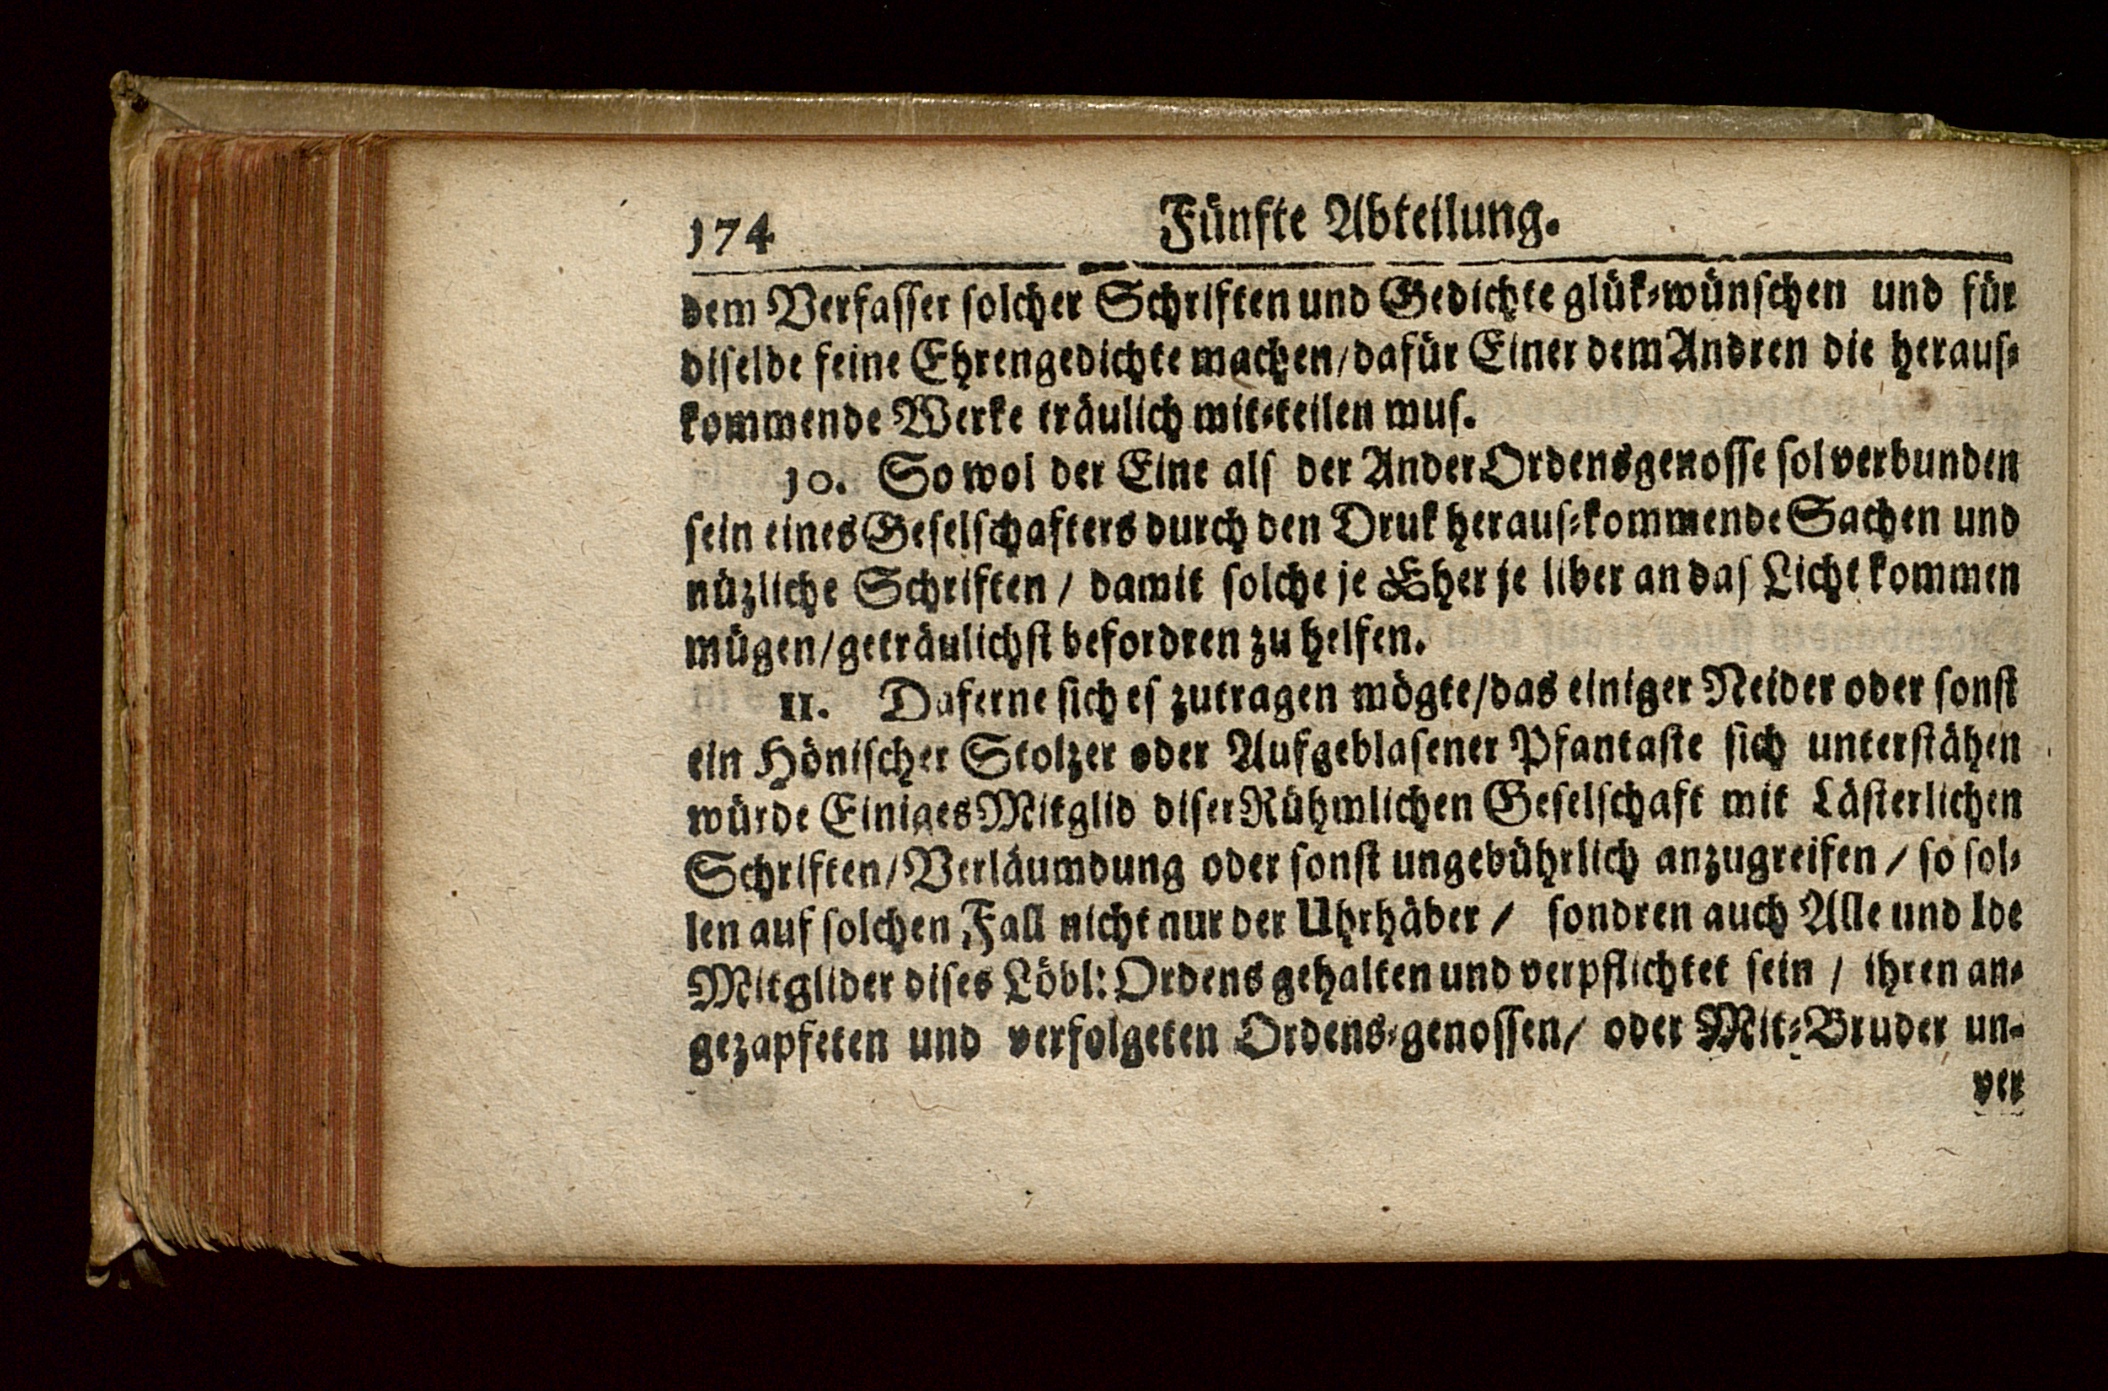 174 Fünfte Abteilung.
dem Verfasser solcher Schriften und Gedichte glük-wünschen und für
diselbe feine Ehrengedichte machen/dafür Einer dem Andren die heraus-
kommende Werke träulich mit-teilen mus.
10. So wol der Eine als der Ander Ordensgenosse sol verbunden
sein eines Geselschafters durch den Druk heraus-kommende Sachen und
nüzliche Schriften / damit solche je Eher je liber an das Licht kommen
mügen/geträulichst befordren zu helfen.
11. Daferne sich es zutragen mögte/das einiger Neider oder sonst
ein Hönischer Stolzer oder Aufgeblasener Pfantaste sich unterstähen
würde Einiges Mitglid diser Rühmlichen Geselschaft mit Lästerlichen
Schriften/Verläumdung oder sonst ungebührlich anzugreifen / so sol-
len auf solchen Fall nicht nur der Uhrhäber / sondren auch Alle und Ide
Mitglider dises Löbl: Ordens gehalten und verpflichtet sein / ihren an-
gezapfeten und verfolgeten Ordens-genossen/ oder Mit-Bruder un-
ver